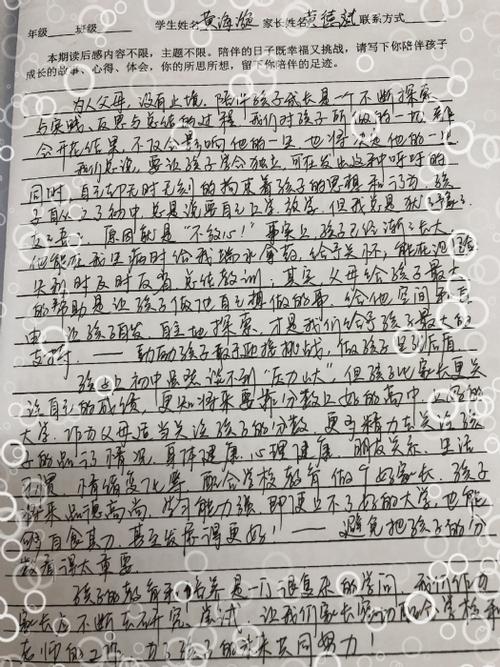 年级 班级 学生姓名 黄海 家长姓名 黄 斌 联系方式
本期读后感内容不限,主题不限。陪伴的日子既幸福又挑战,请写下你陪伴孩子
成长的故事、心得、体会,你的所思所想,留下你陪伴的足迹。
为人父母,没有止境。陪伴孩子成长是一个不断探索
与实践、反思与总结的过程。我们对孩子所做的一切,都
会开花结果,不仅会影响他的一生,也将决定他的一生。
我们总说,要让孩子学会独立,可在发出这种呼吁的
同时,自己却无时无刻的拘束着孩子的思想和行为。孩
子自从上了初中,总是说要自己上学、放学,但我总是
原因就是“不放心!”事实上孩子已经渐渐长大,
他能在我生病时给我端水拿药,给予关怀,能在犯错
误时及时反省,总结教训;其实,父母给孩子最大
的帮助是让孩子做他自己想做的事,给他空间和自
由,让孩子自发、自主地探索,才是我们给予孩子最大的
支持 —— 鼓励孩子敢于迎接挑战,做孩子坚强后盾
孩子上初中虽说谈不到“压力山大”,但孩子比家长更关
注自己的成绩,更知将来要靠分数上好的高中,以至的
大学。作为父母适当关注孩子的分数,更多精力去关注孩
子的品行情况、身体健康、心理健康、朋友关系、生活
习惯、情绪变化等,配合学校教育做个好家长。孩子
将来品德高尚,学习能力强,即便上不了好的大学,也能
够自食其力,甚至发展得更好!—— 避免把孩子的分
数看得太重要
孩子的教育和培养是一门很复杂的学问,我们作为
家长应不断去研究、尝试,让我们家长 配合学校和
老师的工作,为了孩子的将来共同努力!